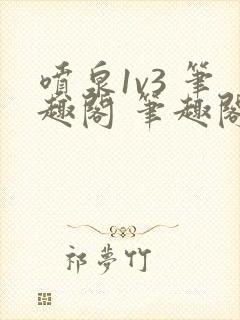 噴泉1v3 筆
趣閣 筆趣閣
祁夢竹